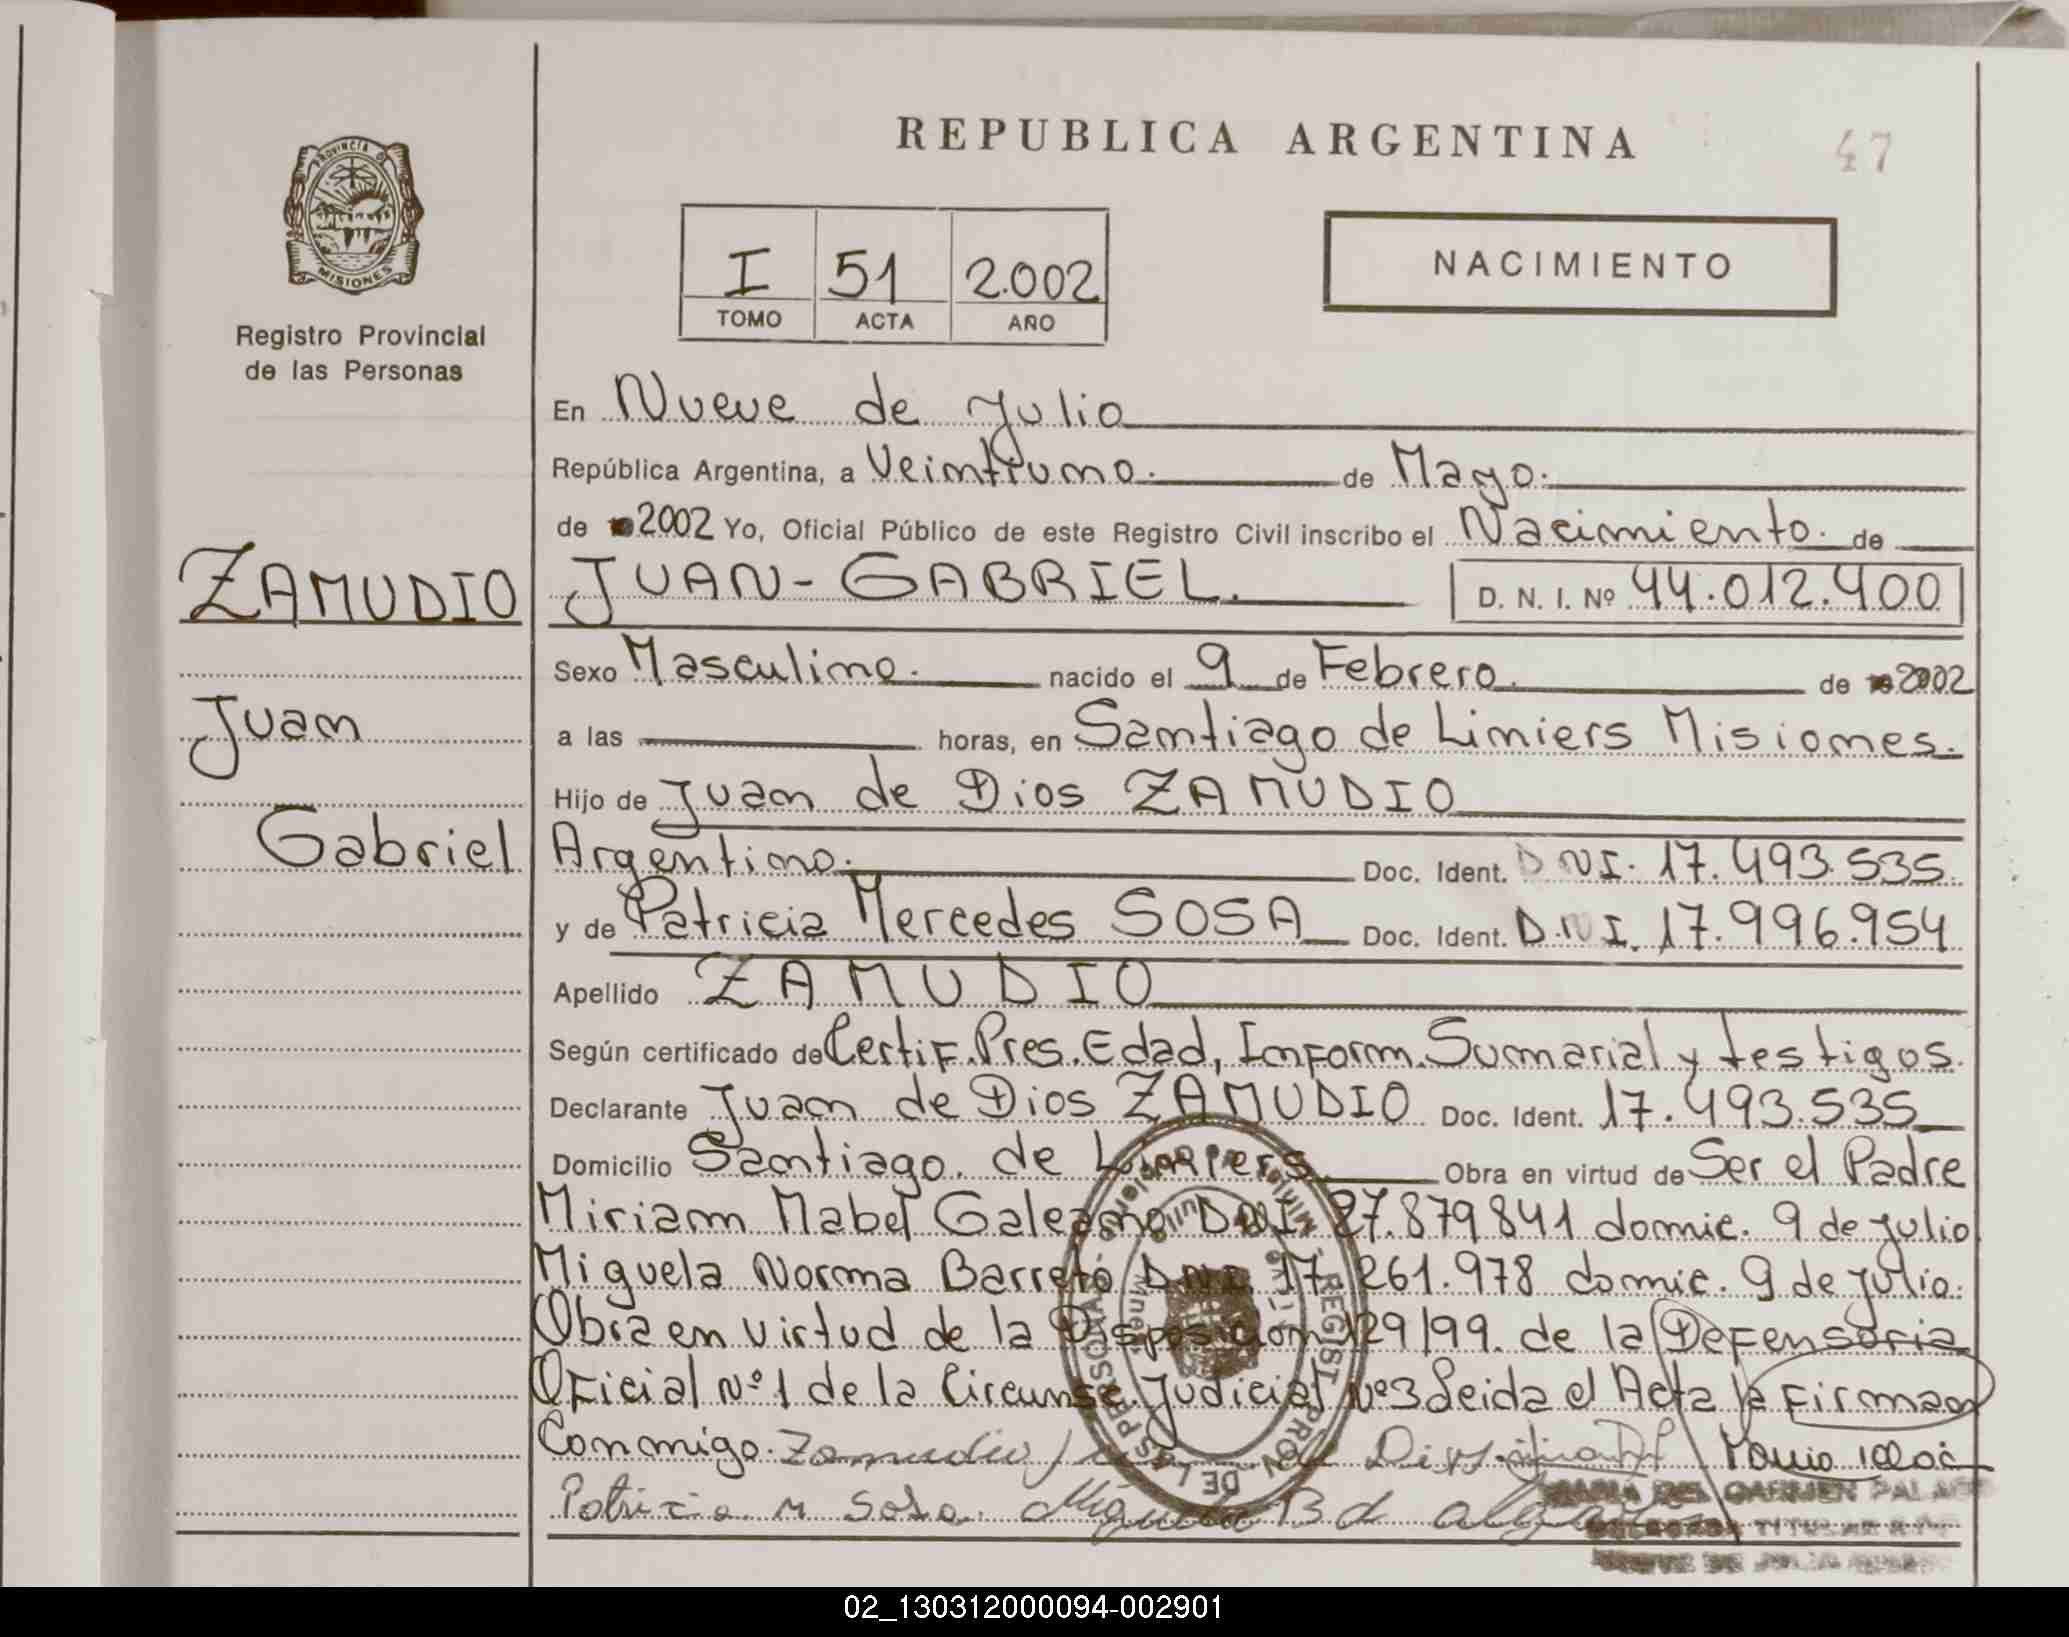 REPUBLICA ARGENTINA
47
PROVINCIA DE
MISIONES
Registro Provincial
de las Personas
I 51 2.002
TOMO ACTA AÑO
NACIMIENTO
En Nueve de Julio
República Argentina, a Veintiuno. de Mayo.
de 2002 Yo, Oficial Público de este Registro Civil inscribo el Nacimiento. de
ZAMUDIO
JUAN-GABRIEL. D. N. I. Nº 44.012.400
Sexo Masculino. nacido el 9 de Febrero. de 2002
Juan
a las horas, en Santiago de Liniers Misiones.
Hijo de Juan de Dios ZAMUDIO
Gabriel
Argentino. Doc. Ident. DNI. 17.493.535.
y de Patricia Mercedes SOSA Doc. Ident. D.N.I. 17.996.954
Apellido ZAMUDIO
Según certificado de Certif. Pres. Edad, Inform. Sumarial y testigos.
Declarante Juan de Dios ZAMUDIO Doc. Ident. 17.493.535
Domicilio Santiago. de Liniers Obra en virtud de Ser el Padre
Miriam Mabel Galeano DNI 27.879841 domic. 9 de Julio
Miguela Norma Barreto D.N.I. 17.261.978 domic. 9 de Julio.
Obra en virtud de la Disposicion 129/99. de la Defensoria
Oficial Nº1 de la Circunsc. Judicial Nº3 Leida el Acta la firman
Conmigo. Zamudio
Patricia M Sosa. Miguela B de
MARIA DEL CARMEN
TITULAR
NUEVE DE JULIO
02_130312000094-002901